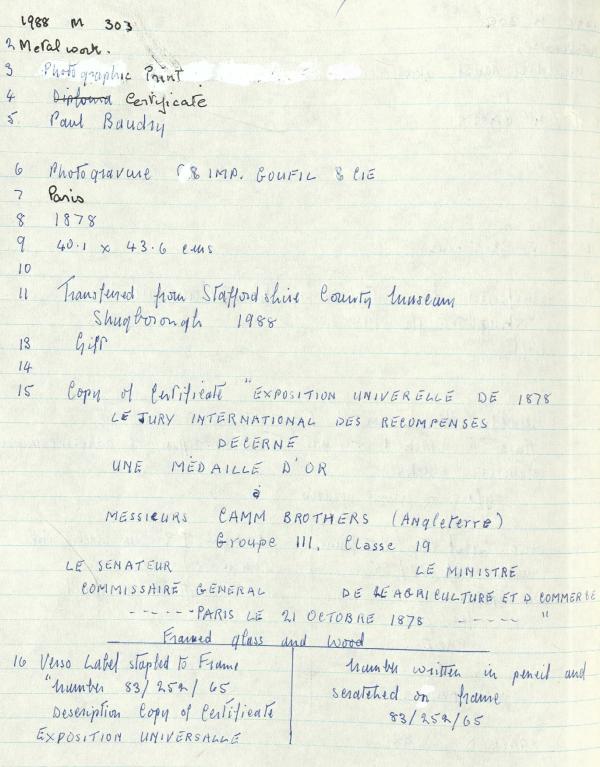 1988 M 303
2 Metalwork.
3 Photographic Print
4 Diploma Certificate
5. Paul Baudry
6 Photogravure & IMP. GOUFIL & CIE
7 Paris
8 1878
9 40.1 x 43.6 cms
10
11 Transferred from Staffordshire County Museum
Shugborough 1988
13 Gift
14
15 Copy of Certificate "EXPOSITION UNIVERELLE DE 1878
LE JURY INTERNATIONAL DES RECOMPENSES
DECERNE
UNE MÉDAILLE D'OR
à
MESSIEURS CAMM BROTHERS (Angleterre)
Groupe III, Classe 19
LE SENATEUR LE MINISTRE
COMMISSAIRE GENERAL DE LE AGRICULTURE ET D COMMERCE
------PARIS LE 21 OCTOBRE 1878 ----- "
Framed glass and wood
16 Verso Label stapled to Frame
"Number 83/252/65
Description Copy of Certificate
EXPOSITION UNIVERSALLE
Number written in pencil and
scratched on frame
83/252/65